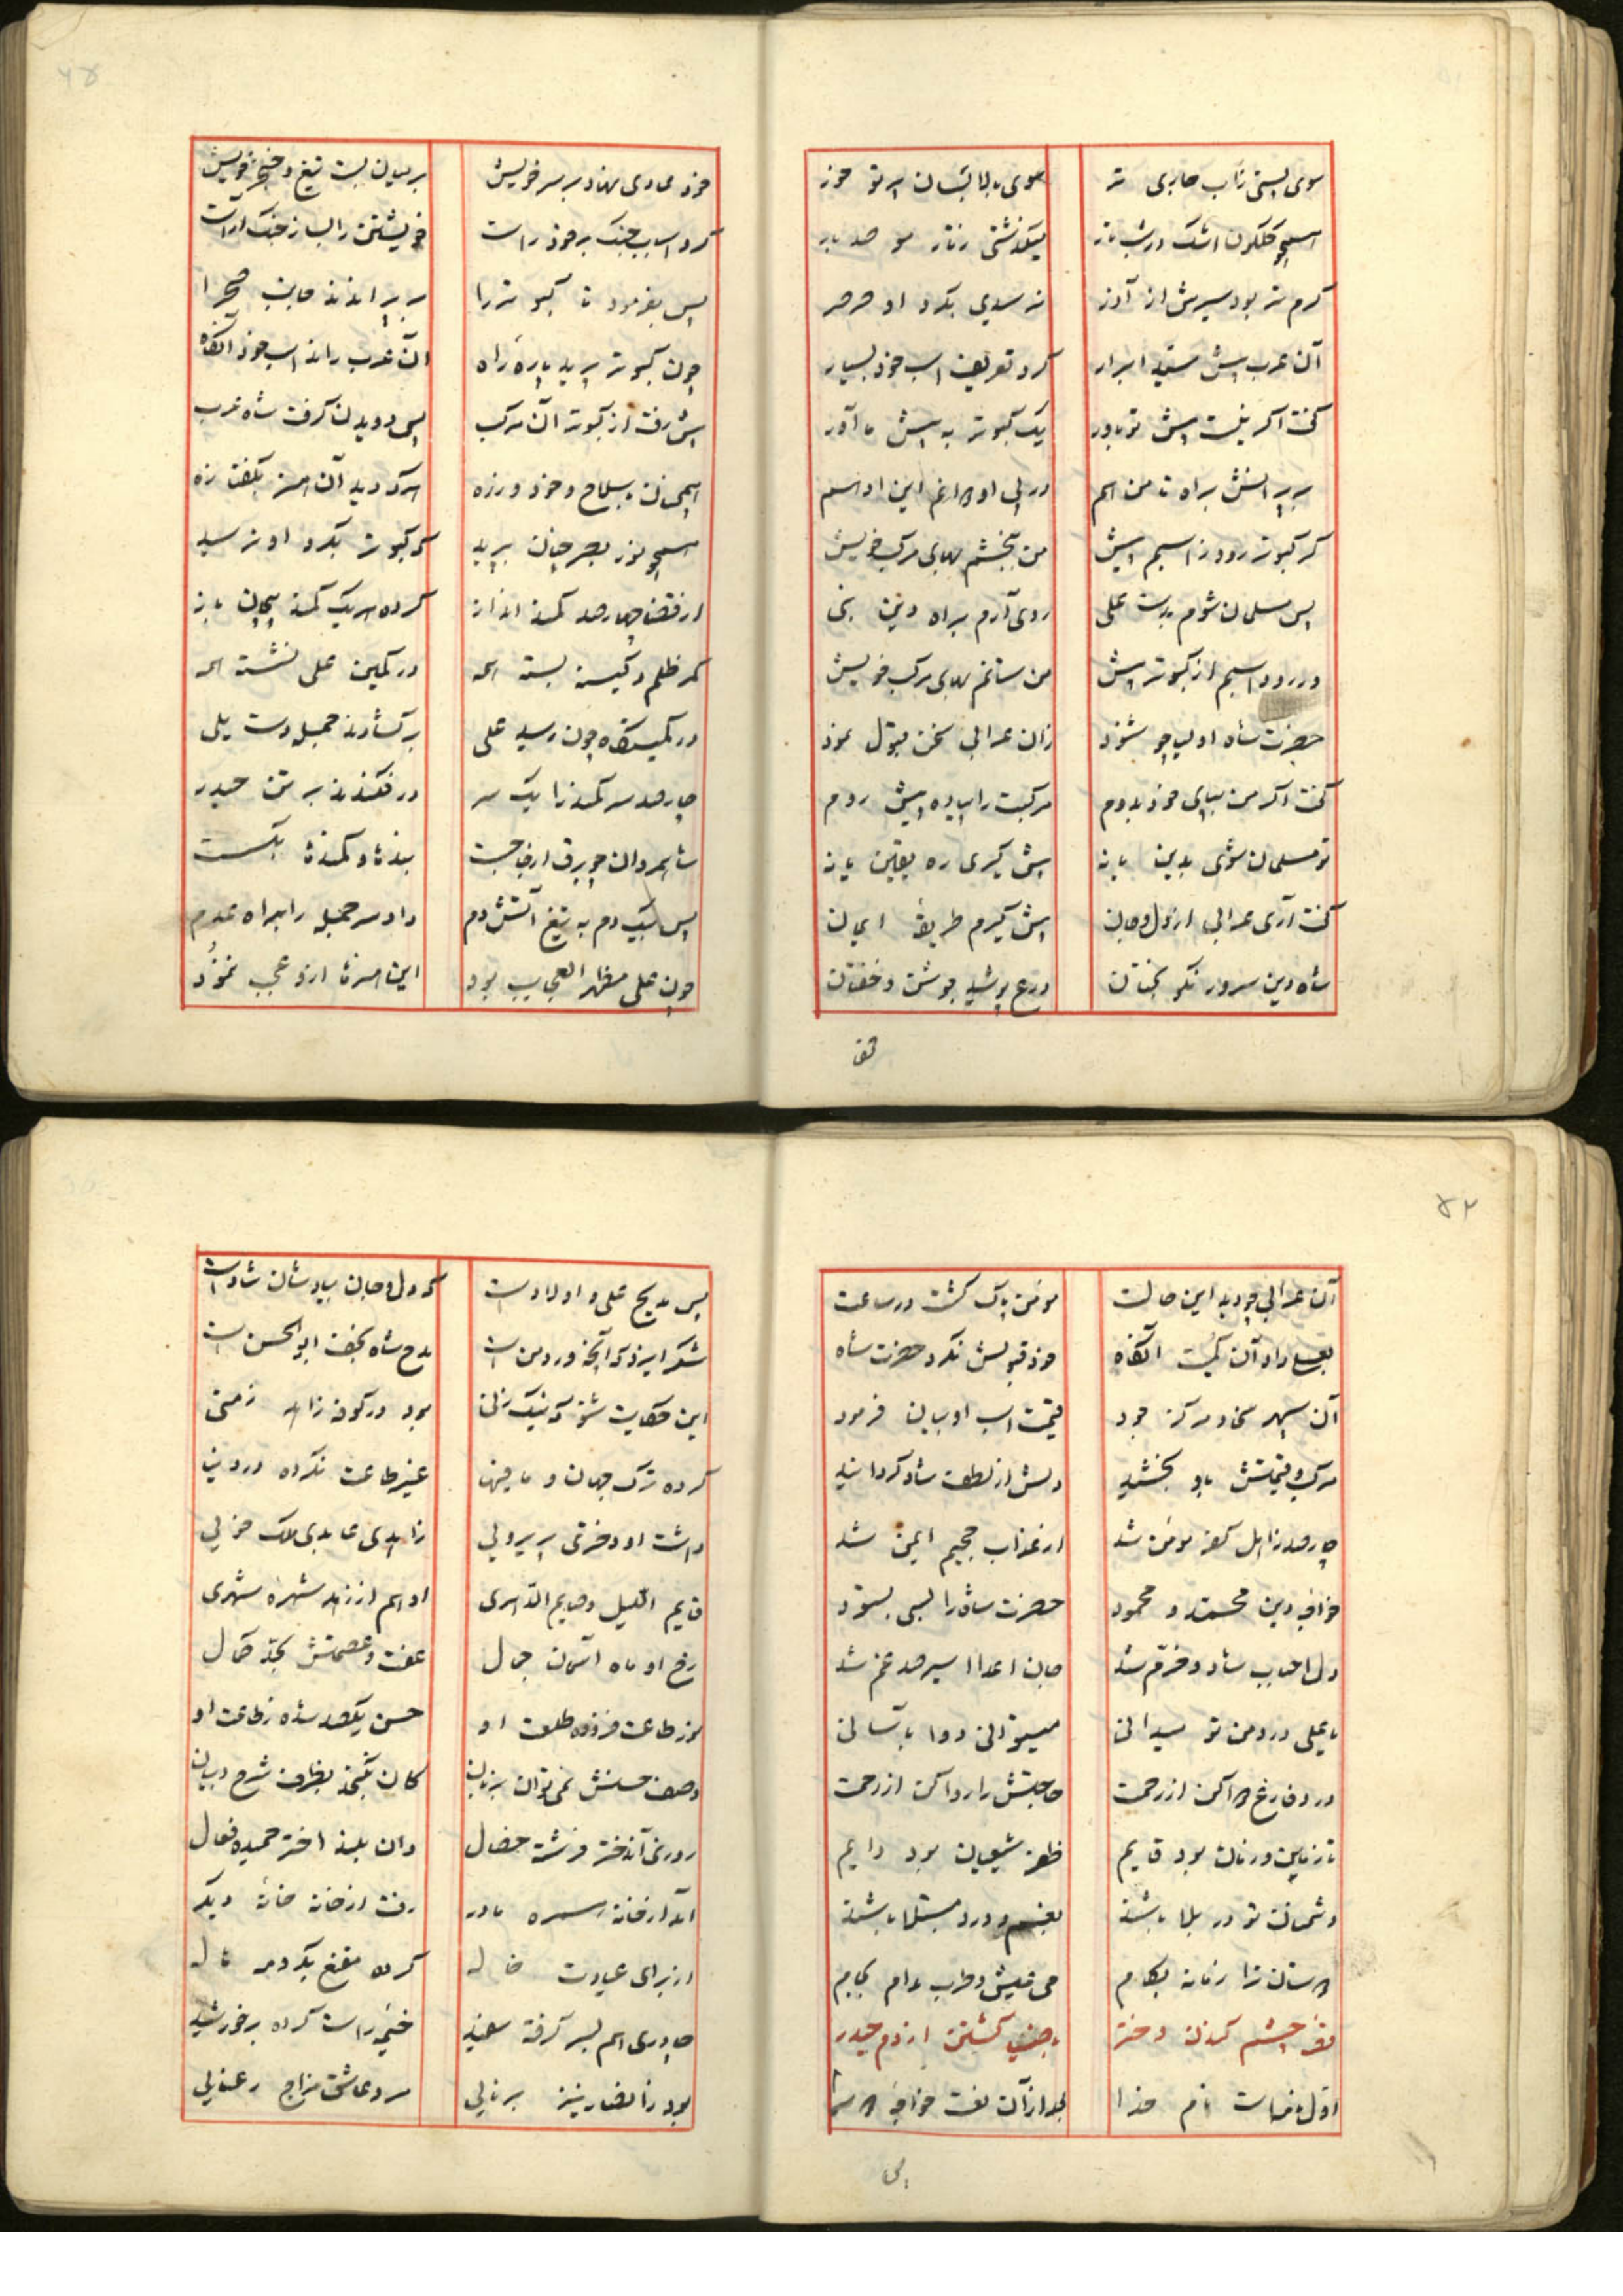 سوی پستی ز آب جاری تر سوی بالا بسان پرتو خور
همچو گلگون اشک در شب تار میگذشتی ز تار مو صد بار
گرم تر بود سیرش از آذر نرسیدی بگرد او صرصر
آن عرب پیش سید ابرار کرد تعریف اسب خود بسیار
گفت اگر نیست پیش تو باور یک کبوتر به پیش ما آور
بپرانش براه تا من هم در پی او دوانم این ادهم
گر کبوتر رود ز اسبم پیش من ببخشم بهای مرکب خویش
پس مسلمان شوم بدست علی روی آرم براه دین نبی
ور رود اسبم از کبوتر پیش من ستانم بهای مرکب خویش
حضرت شاه اولیا چو شنود زان عرابی سخن قبول نمود
گفت اگر من بپای خود بدوم مرکبت را پیاده پیش روم
تو مسلمان شوی بدین یا نه پیش گیری ره یقین یا نه
گفت آری عرابی از دل و جان پیش گیرم طریقهٔ ایمان
شاه دین سرور نکو بختان درع پوشید جوشن و خفتان
خود عادی نهاد بر سر خویش بر میان بست تیغ و خنجر خویش
کرد اسباب جنگ بر خود راست خویشتن را بساز جنگ آراست
پس بفرمود تا کبوتر را بپرانند جانب صحرا
چون کبوتر پرید پارهٔ راه آن عرب راند اسب خود آنگاه
پیش رفت از کبوتر آن مرکب پس دویدن گرفت شاه عرب
همچنان با سلاح و خود و زره هرکه دید آن هنر بگفتا زه
همچو نور بصر چنان پرید که کبوتر بگرد او نرسید
از قضا چارصد کمند انداز کرده هر یک کمند پیچان باز
کمر ظلم و کینه بسته همه در کمین علی نشسته همه
در کمینگاه چون رسید علی برگشادند جمله دست یلی
چارصد سر کمند را یک سر در فکندند بر تن حیدر
شاه مردان چو برق از جا جست بندها و کمندها بگسست
پس بیکدم به تیغ آتش دم داد سر جمله را براه عدم
چون علی مظهر العجایب بود این هنرها ازو عجب ننمود
تف
آن عرابی چو دید این حالت مؤمن پاک گشت در ساعت
بعلی داد آن کمیت آنگاه خود قبولش نکرد حضرت شاه
آن سپهر سخا و مرکز جود قیمت اسب او بیان فرمود
مرکب و قیمتش باو بخشید دلش از لطف شاد گردانید
چارصد ز اهل کفر مؤمن شد از عذاب جحیم ایمن شد
خواجهٔ دین محمد و محمود حضرت شاه را بسی بستود
دل احباب شاد و خرم شد جان اعدا اسیر صد غم شد
یا علی درد من تو میدانی میتوانی دوا بآسانی
درد فارغ دوا کن از رحمت حاجتش را روا کن از رحمت
تا زمین و زمان بود قایم ظفر شیعیان بود دایم
دشمنان تو در بلا باشند بغم و درد مبتلا باشند
دوستان ترا زمانه بکام می عیش و طرب مدام بجام
نقل چشم کندن دختر و خوب گشتن از دم حیدر
اول ماست نام خدا بعد از آن نعت خواجهٔ دوسرا
پس
پس مدیح علی و اولادست که دل و جان بیادشان شادست
شکر ایزد که آنچه ورد منست مدح شاه نجف ابوالحسن است
این حکایت شنو که نیک زنی بود در کوفه زاهد زمنی
کرده ترک جهان و مافیها غیر طاعت نکرده در دنیا
داشت او دختری پریرویی زاهدی عابدی ملک خویی
قایم اللیل و صایم الدهری او هم از زهد شهرهٔ شهری
رخ او ماه آسمان جمال عفت و عصمتش بحد کمال
نور طاعت فزوده طلعت او حسن یکصد شده ز طاعت او
وصف حسنش نمی توان بزبان کان نگنجد بظرف شرح و بیان
روزی آن دختر فرشته خصال وان بلند اختر حمیده فعال
آمد از خانه همره مادر رفت از خانه خانهٔ دیگر
از برای عیادت خاله کرده مقنع بگرد مه هاله
چادری هم بسر گرفته سفید خیمه راست کرده بر خورشید
بود ز انصار نیز برنایی مرد عاشق مزاج رعنایی